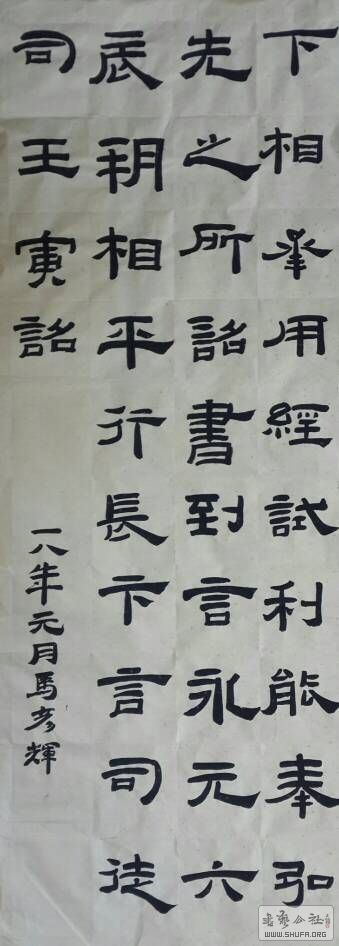 下相承用經試利能奉弘
先之所詔書到言永元六
辰朔相平行長卞言司徒
司王寅詔
一八年元月馬彥輝
書藝公社
WWW.SHUFA.ORG